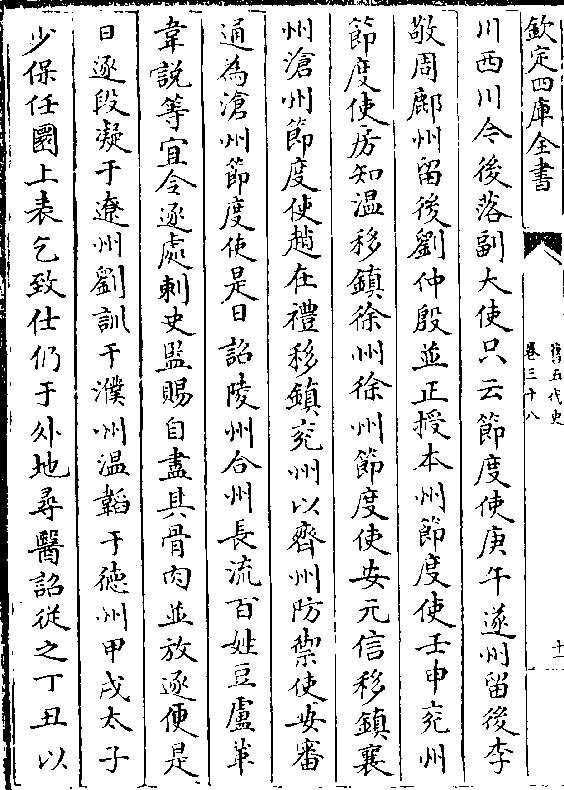 欽定四庫全書
舊五代史
卷三十八
十一
川西川今後落副大使只云節度使庚午遂州留後李
敬周鄜州留後劉仲殷並正授本州節度使壬申兖州
節度使房知温移鎮徐州徐州節度使安元信移鎮襄
州滄州節度使趙在禮移鎮兖州以齊州防禦使安審
通為滄州節度使是日詔陵州合州長流百姓豆盧革
韋說等宜令逐處刺史監賜自盡其骨肉並放逐便是
日逐段凝于遼州劉訓于濮州温韜于德州甲戌太子
少保任圜上表乞致仕仍于外地尋醫詔從之丁丑以